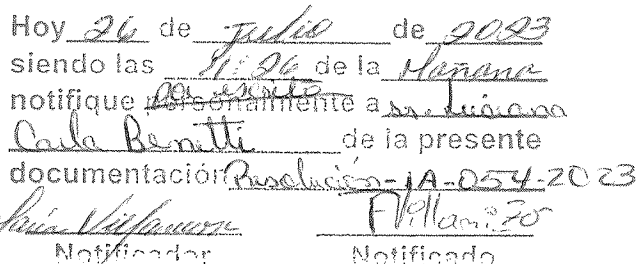 Hoy 26 de Julio de 2023
siendo las 11:26 de la Mañana
notifique por escrito personalmente a
Carla Benetti de la presente
documentación Resolución-IA-054-2023
Notificador Notificado